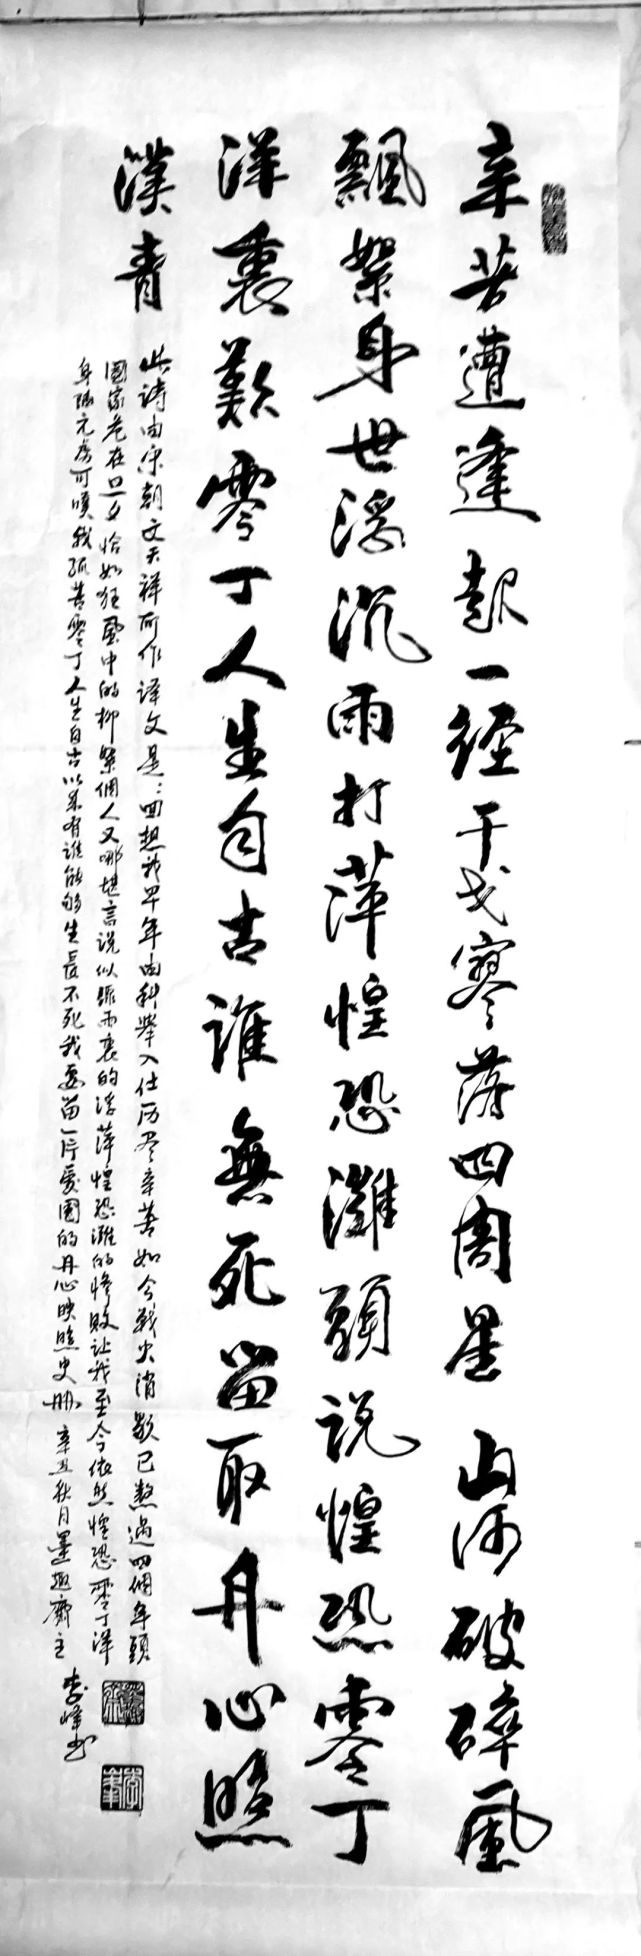 辛苦遭逢起一經干戈寥落四周星山河破碎風
飄絮身世浮沉雨打萍惶恐灘頭説惶恐零丁
洋裏歎零丁人生自古誰無死留取丹心照
漢青
此詩由宋朝文天祥所作译文是：回想我早年由科舉入仕历尽辛苦如今戰火消歇已熬過四個年頭
國家危在旦夕恰如狂風中的柳絮個人又哪堪言说似驟雨裏的浮萍惶恐灘的慘敗让我至今依然惶恐零丁洋
身陷元虏可嘆我孤苦零丁人生自古以来有誰能够生長不死我要留一片爱國的丹心映照史册 辛丑秋月墨趣齋主
李峰书